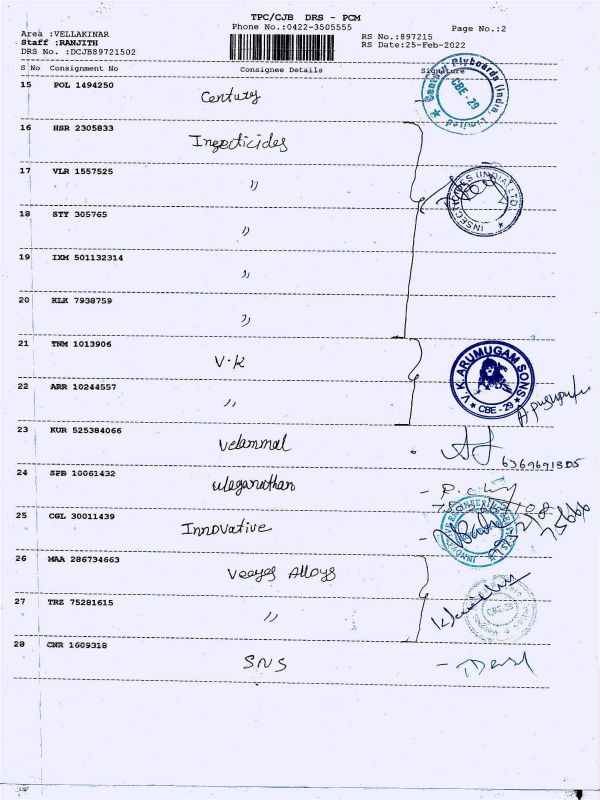 TPC/CJB DRS - PCM
Phone No.:0422-3505555
Page No.:2
Area :VELLAKINAR
Staff :RANJITH
DRS No. :DCJB89721502
RS No.:897215
RS Date:25-Feb-2022
S No Consignment No Consignee Details Signature
15 POL 1494250 Century
Century Plyboards (India) Limited
CBE - 29
16 HSR 2305833 Insecticides
17 VLR 1557525 "
INSECTICIDES (INDIA) LTD.
18 STY 305765 "
19 IXM 501132314 "
20 KLK 7938759 "
21 TNM 1013906 V.K
V.K. ARUMUGAM SONS
CBE - 29
22 ARR 10244557 "
23 KUR 525384066 Velammal
24 SPB 10061432 uleganathan
25 CGL 30011439 Innovative
26 MAA 286734663 Veeyes Alloys
27 TRZ 75281615 "
CBE-29
28 CNR 1609318 SNS